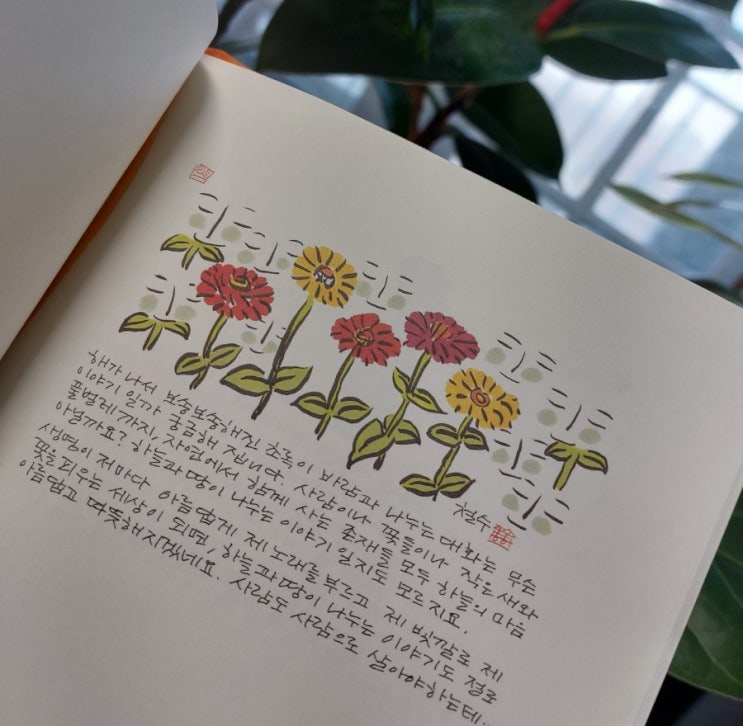 철수
해가 나서 보송보송해진 초록이 바람과 나누는 대화는 무슨
이야기 일까 궁금해 집니다. 사람이나 꽃들이나 작은 새와
풀벌레까지, 자연에서 함께 사는 존재들 모두 하늘의 마음
아닐까요? 하늘과 땅이 나누는 이야기 일지도 모르지요.
생명이 저마다 아름답게 제 노래를 부르고 제 빛깔로 제
꽃을 피우는 세상이 되면, 하늘과 땅이 나누는 이야기도 절로
아름답고 따뜻해지겠네요. 사람도 사람으로 살아야하는데...